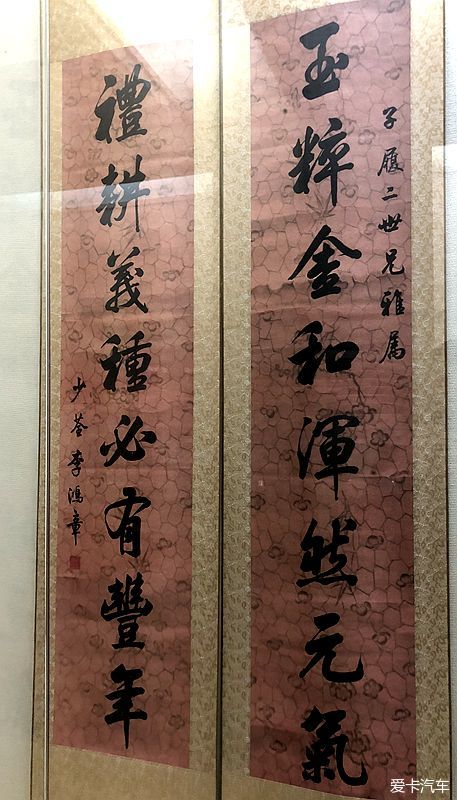 子履二世兄雅属
玉粹金和渾然元氣
禮耕義種必有豐年
少荃李鴻章
爱卡汽车